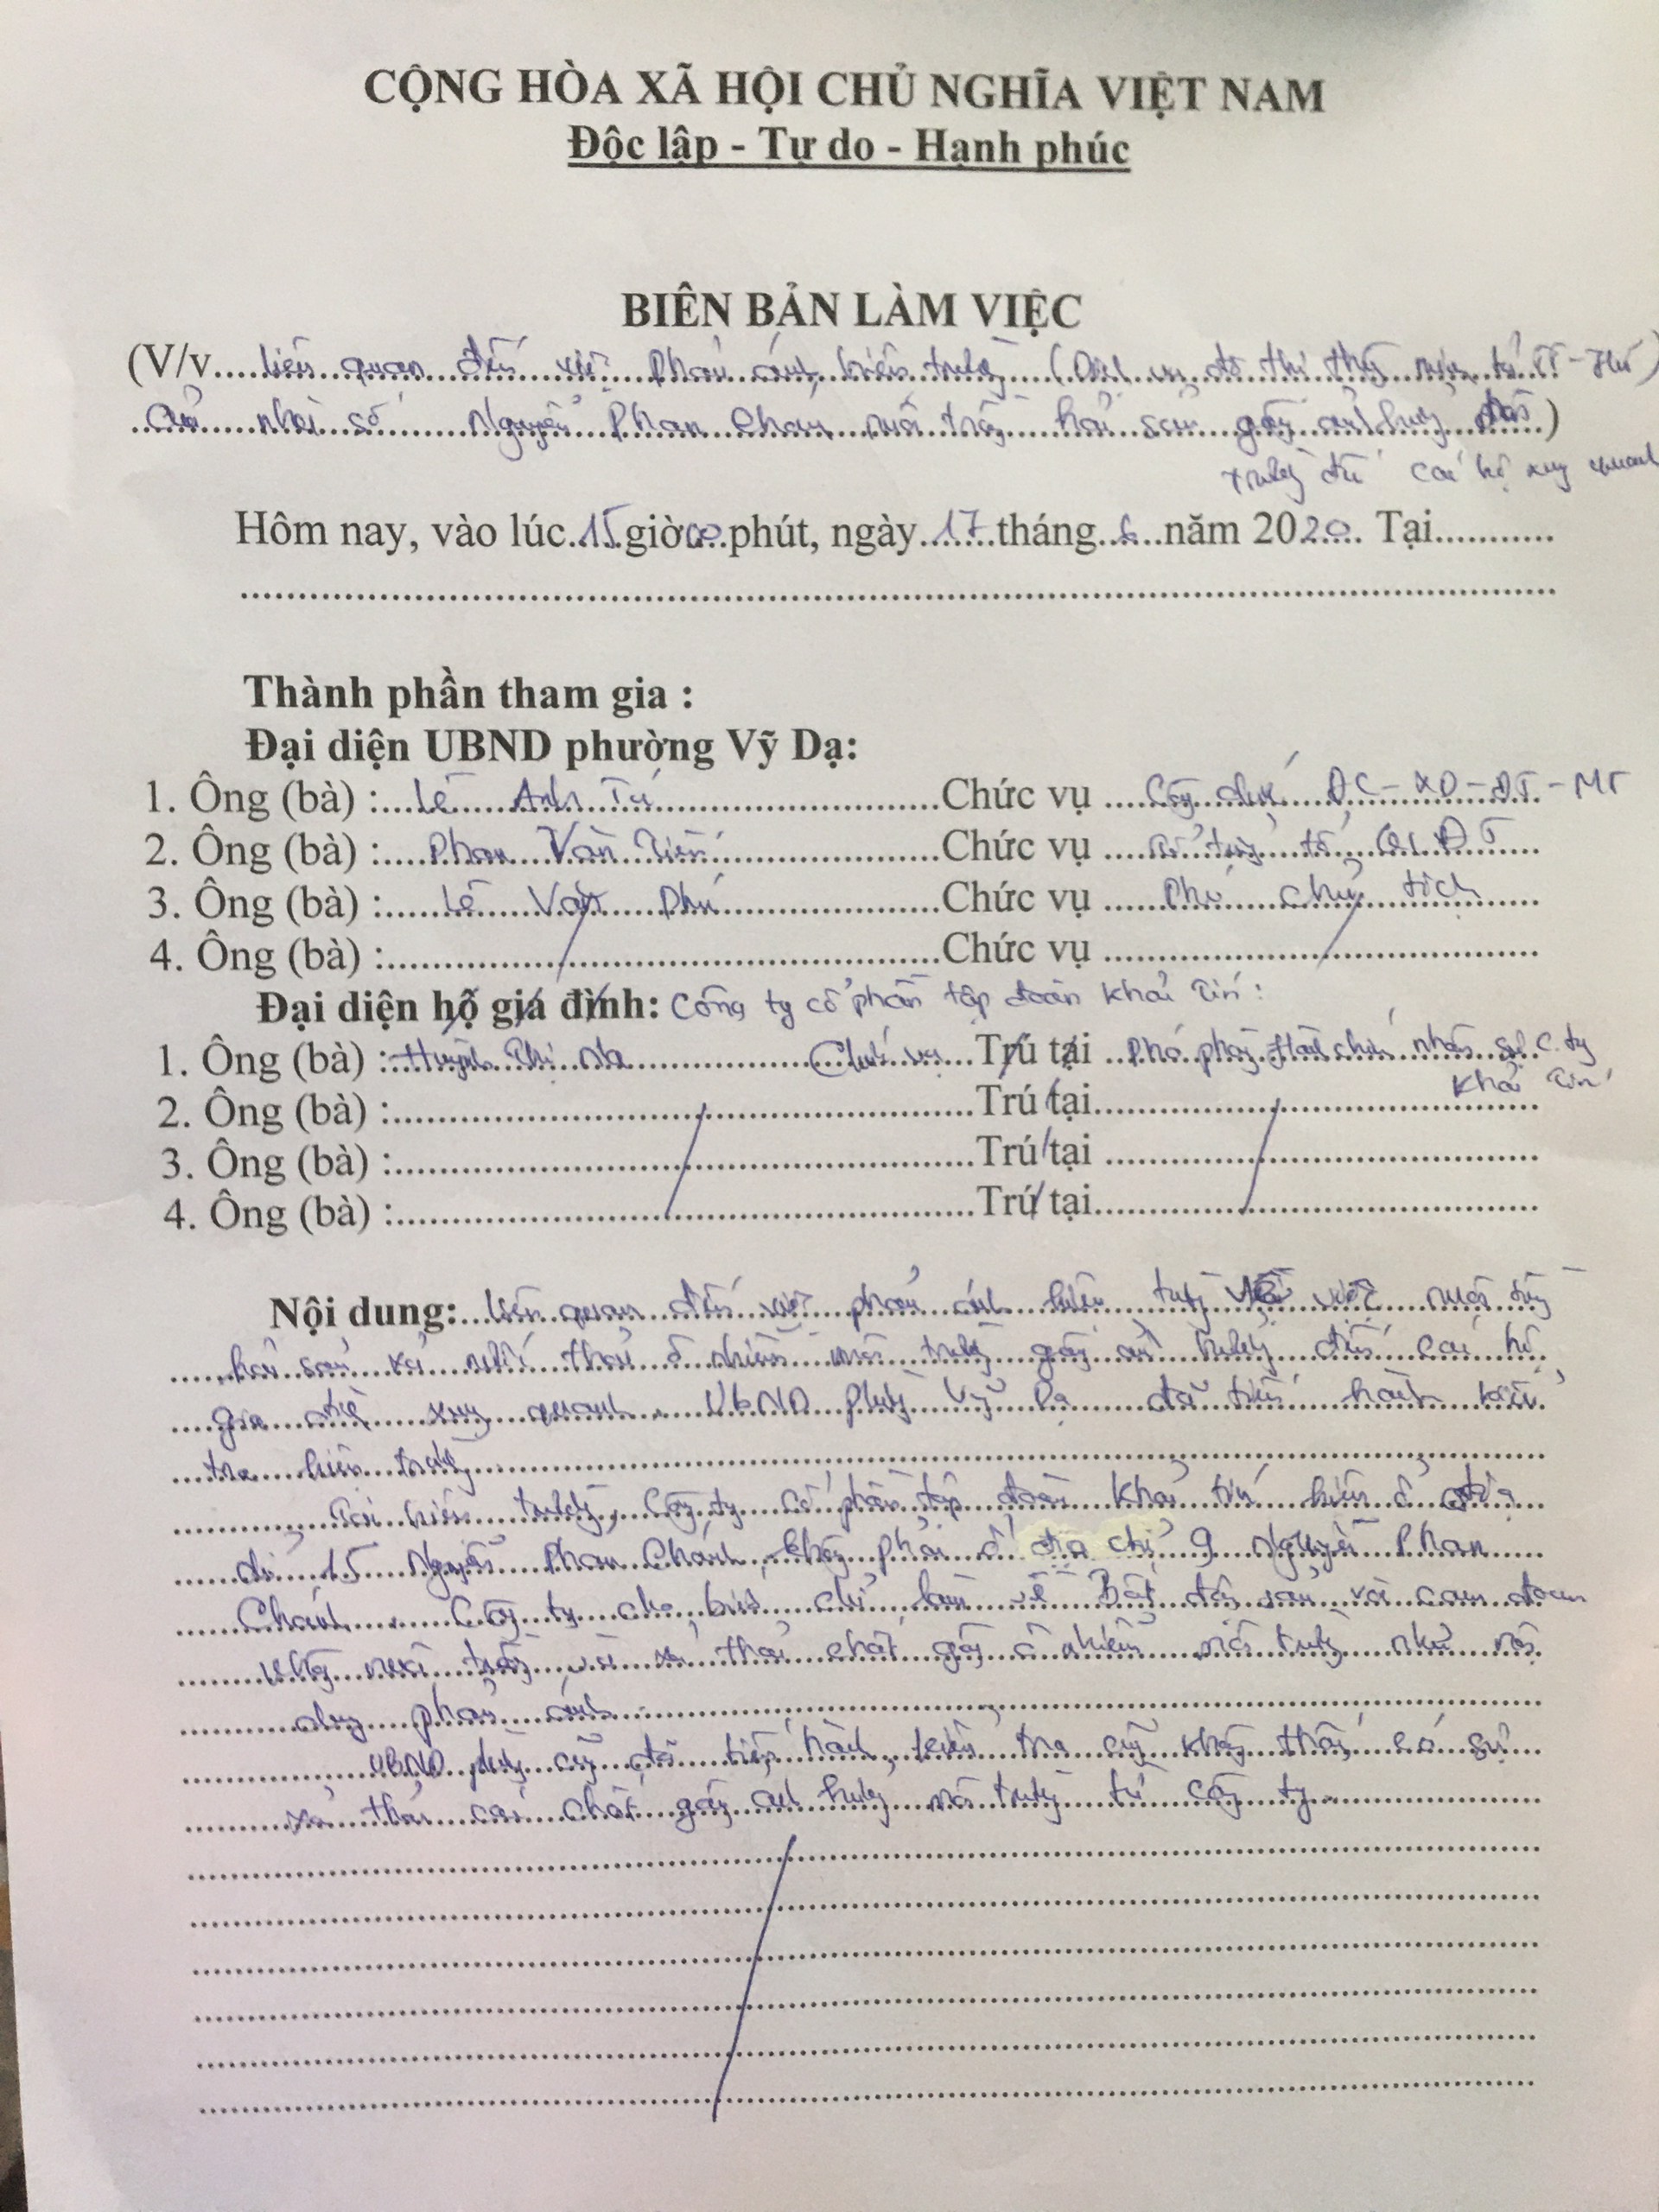 CỘNG HÒA XÃ HỘI CHỦ NGHĨA VIỆT NAM
Độc lập - Tự do - Hạnh phúc
BIÊN BẢN LÀM VIỆC
(V/v.... liên quan đến việc phản ánh hiện trường (Dịch vụ đô thị thông minh tỉnh TT-Huế)
nhà số Nguyễn Phan Chánh nuôi trồng hải sản gây ảnh hưởng đến)
đến các hộ xung quanh
Hôm nay, vào lúc 15 giờ 00 phút, ngày 17 tháng 6 năm 2020. Tại...........
Thành phần tham gia :
Đại diện UBND phường Vỹ Dạ:
1. Ông (bà) : Lê Anh Tú Chức vụ Công chức ĐC-XD-ĐT-MT
2. Ông (bà) : Phan Văn Tiến Chức vụ Tổ trưởng tổ QLĐT
3. Ông (bà) : Lê Văn Phú Chức vụ Phó chủ tịch
4. Ông (bà) : Chức vụ
Đại diện hộ giá đình: Công ty cổ phần tập đoàn Khải Tín:
1. Ông (bà) : Huỳnh Thị Na Chức vụ Trú tại Phó phòng Hành chính nhân sự C.ty
Khải Tín
2. Ông (bà) : Trú tại
3. Ông (bà) : Trú tại
4. Ông (bà) : Trú tại
Nội dung: liên quan đến việc phản ánh hiện trường việc nuôi trồng
hải sản xả nước thải ô nhiễm môi trường gây ảnh hưởng đến các hộ
gia đình xung quanh. UBND phường Vỹ Dạ đã tiến hành kiểm
tra hiện trường
Tại hiện trường, Công ty cổ phần tập đoàn Khải Tín hiện ở địa
chỉ 15 Nguyễn Phan Chánh, không phải ở địa chỉ 9 Nguyễn Phan
Chánh. Công ty cho biết chỉ làm về Bất động sản và cam đoan
không nuôi trồng và xả thải chất gây ô nhiễm môi trường như nội
dung phản ánh.
UBND phường cũng đã tiến hành kiểm tra cũng không thấy có sự
xả thải các chất gây ảnh hưởng môi trường từ Công ty.